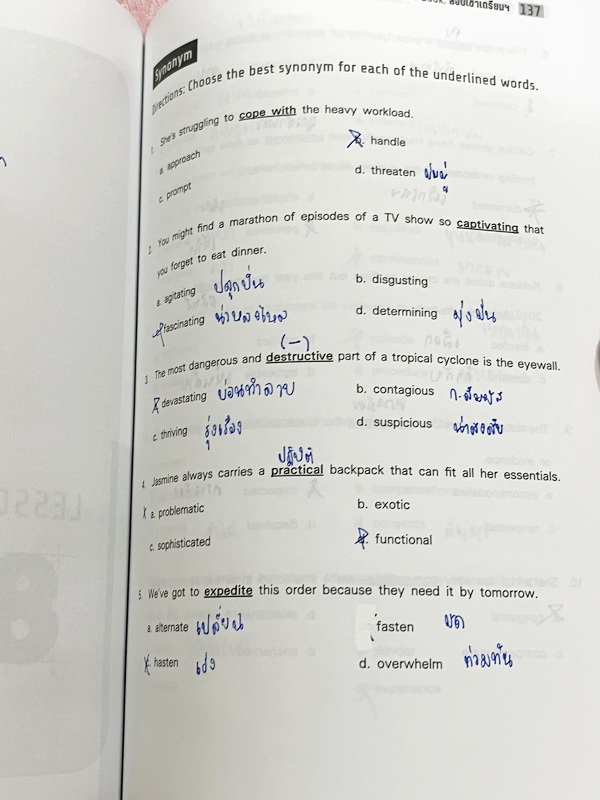 สอบเข้าเตรียมฯ 137
Synonym
Directions: Choose the best synonym for each of the underlined words.
1. She's struggling to cope with the heavy workload.
a. approach
b. handle
c. prompt
d. threaten ข่มขู่
2. You might find a marathon of episodes of a TV show so captivating that
you forget to eat dinner.
a. agitating ปลุกปั่น
b. disgusting
fascinating น่าหลงใหล
d. determining มุ่งมั่น
(-)
3. The most dangerous and destructive part of a tropical cyclone is the eyewall.
devastating บ่อนทำลาย
b. contagious ก.สัมผัส
c. thriving รุ่งเรือง
d. suspicious น่าสงสัย
ปฏิบัติ
4. Jasmine always carries a practical backpack that can fit all her essentials.
a. problematic
b. exotic
c. sophisticated
d. functional
5. We've got to expedite this order because they need it by tomorrow.
a. alternate เปลี่ยน
fasten มัด
c. hasten เร่ง
d. overwhelm ท่วมท้น
LESSO
8